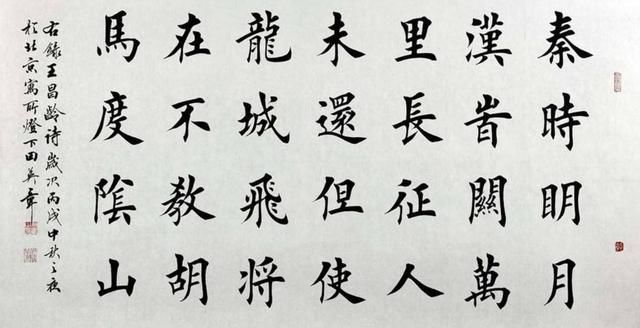 秦時眀月
漢旹關萬
里長征人
未還但使
龍城飛将
在不教胡
馬度陰山
右錄王昌齡詩歲次丙戌中秋之夜
於北京寓所燈下田英章